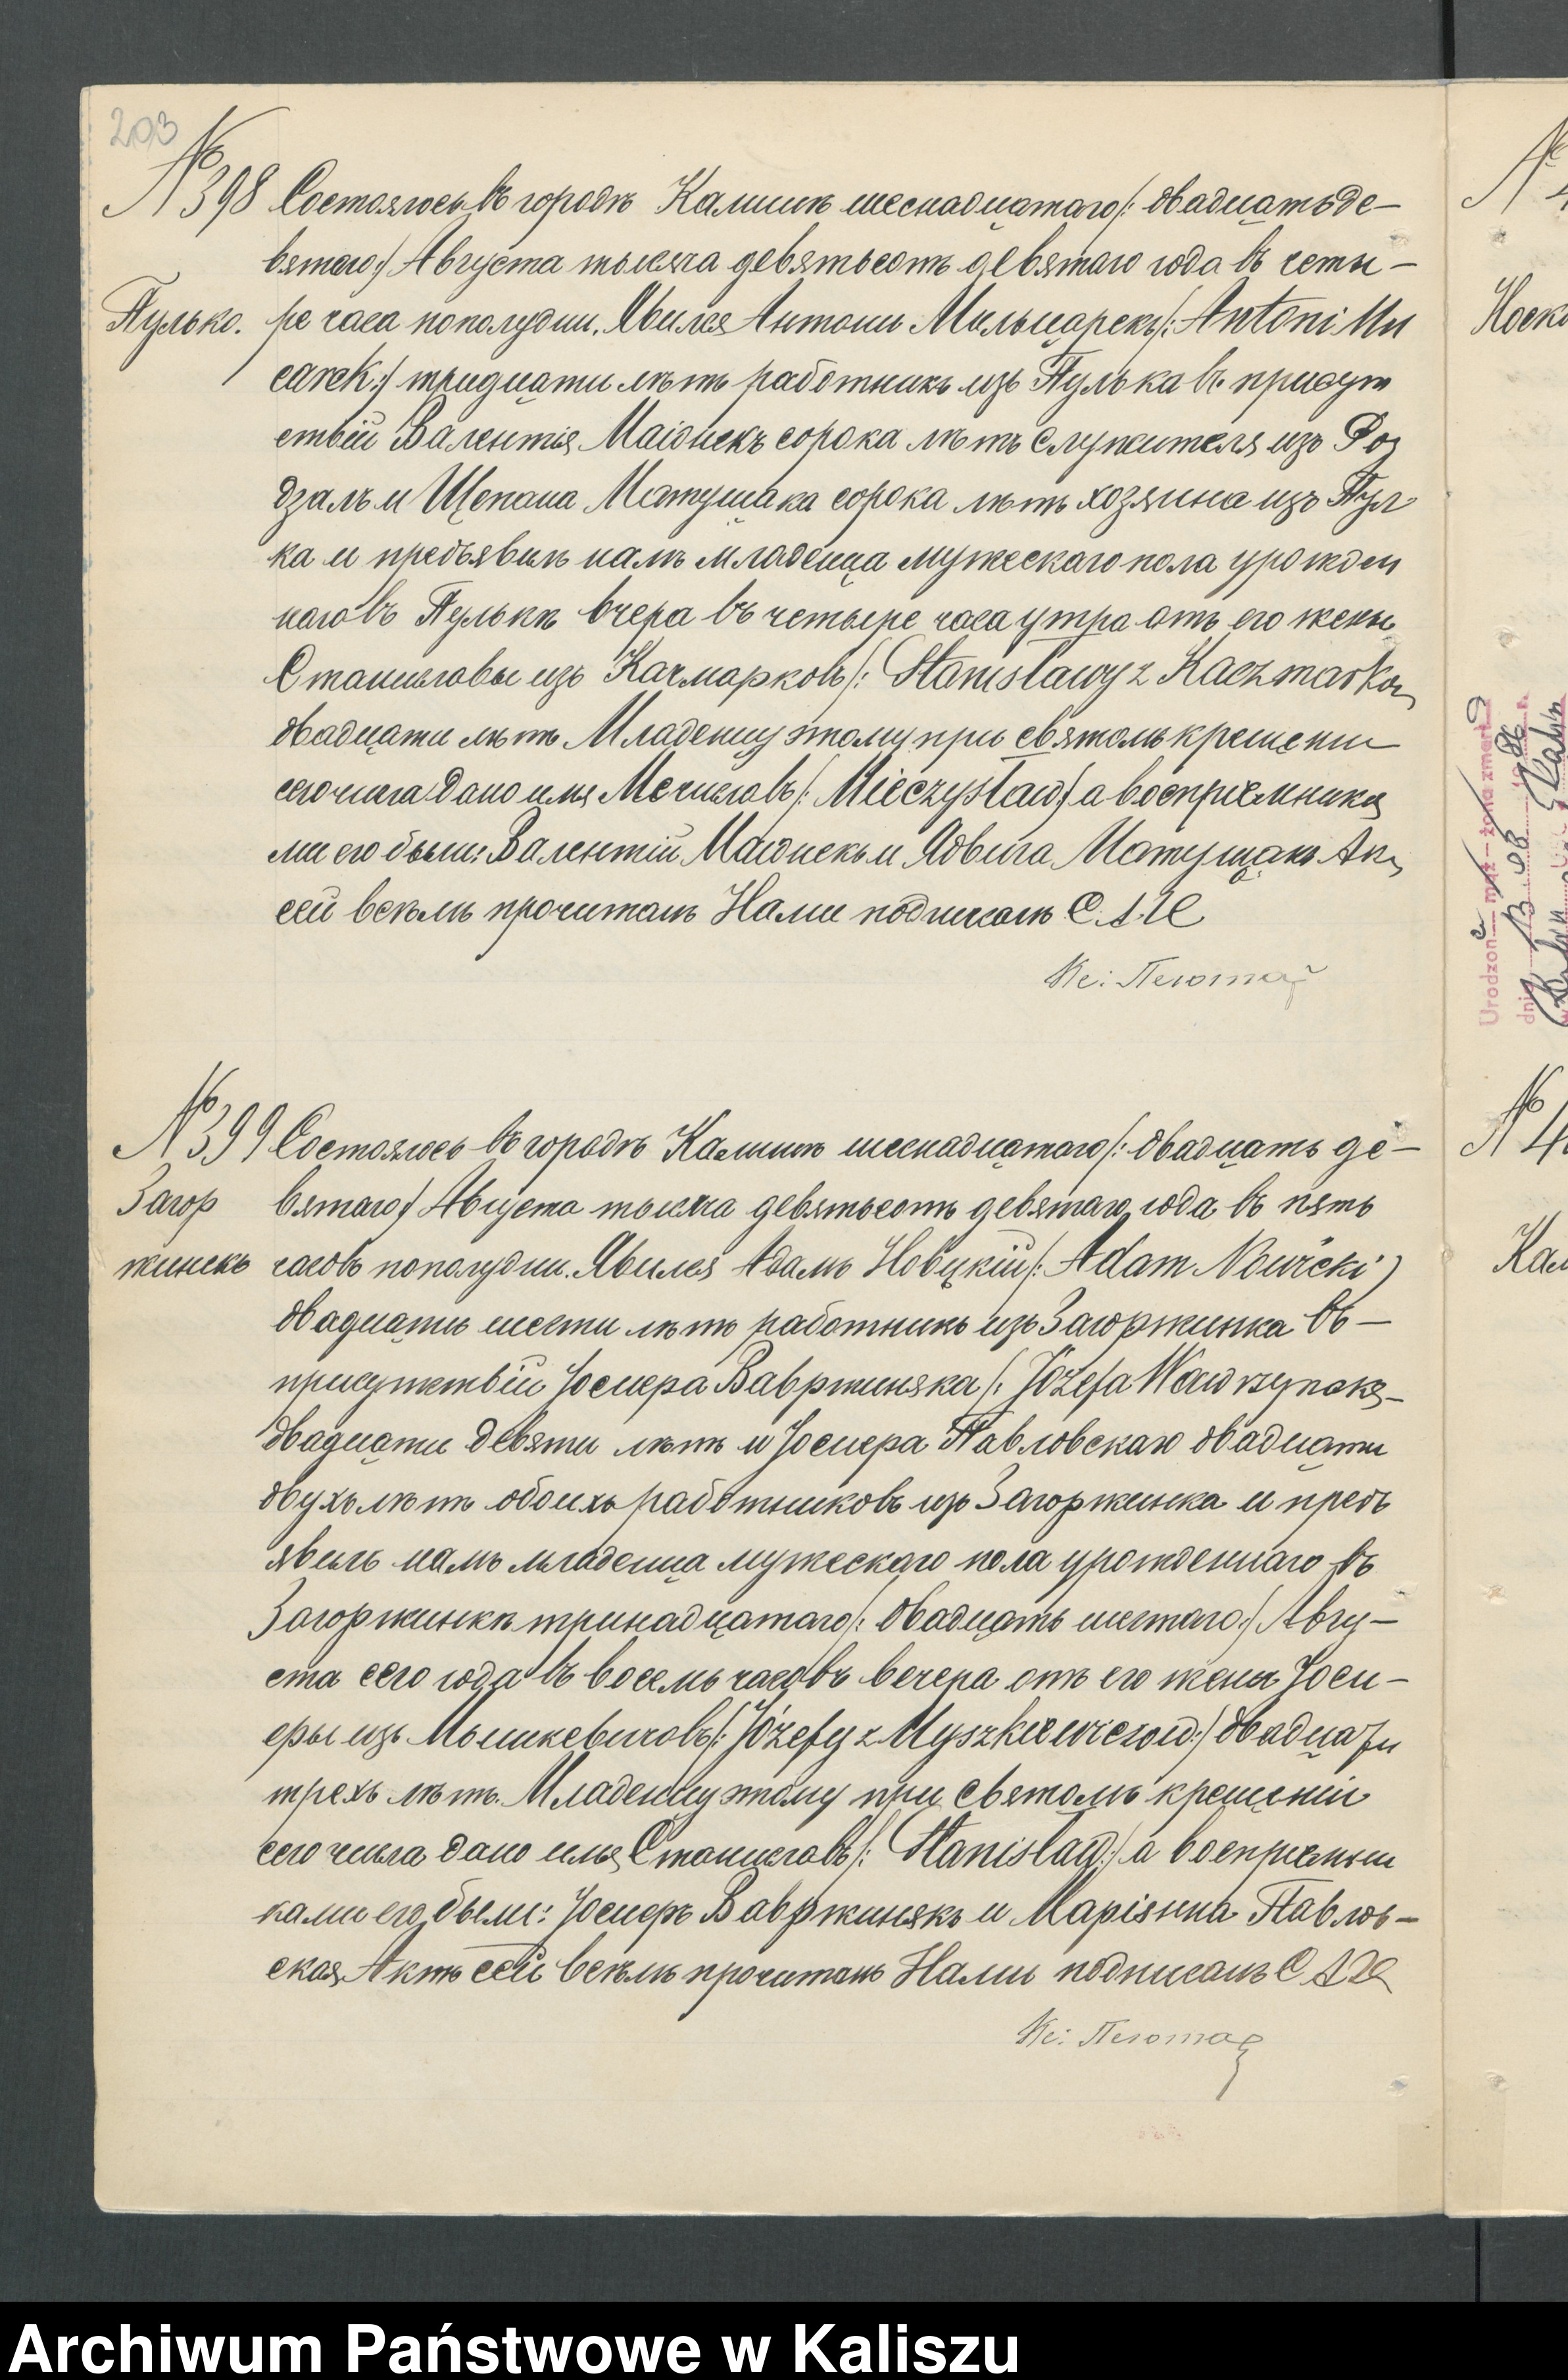 203
№ 398 Состоялось въ городѣ Калишѣ шеснадцатаго /: двадцать де-
вятаго :/ Августа тысяча девятьсотъ девятаго года въ четы-
Пулько. ре часа пополудни. Явился Антони Мильцарекъ /: Antoni Mil
carek :/ тридцати лѣтъ работникъ изъ Пулька въ присут
ствіи Валентія Маіонекъ сорока лѣтъ служителя изъ Роз
дзалъ и Щепана Матушака сорока лѣтъ хозяина изъ Пул
ка и предъявилъ намъ младенца мужескаго пола урожден
наго въ Пулькѣ вчера въ четыре часа утра отъ его жены
Станиславы изъ Качмарковъ /: Stanisławy z Kaczmarków
двадцати лѣтъ Младенцу этому при святомъ крещени
сего числа дано имя Мечиславъ /: Mieczysław :/ а воспріемника
ми его были: Валентій Маіонекъ и Ядвига Матушакъ Актъ
сей всѣмъ прочитанъ Нами подписанъ С.А.Н
Кс:
№ 399 Состоялось въ городѣ Калишѣ шеснадцатаго /: двадцать де-
Загор вятаго :/ Августа тысяча девятьсотъ девятаго года въ пять
жинекъ часовъ пополудни. Явился Адамъ Новицкій /: Adam Nowicki :/
двадцать шести лѣтъ работникъ изъ Загоржинка въ -
присутствіи Іосифа Вавржиняка /: Józefa Wawrzyniaka
двадцати девяти лѣтъ и Іосифа Павловскаго двадцати
двухъ лѣтъ обоихъ работниковъ изъ Загоржинка и предъ
явилъ намъ младенца мужескаго пола урожденнаго въ
Загоржинкѣ тринадцатаго /: двадцать шестаго :/ Авгу-
ста сего года въ восемь часовъ вечера отъ его жены Іоси-
фы изъ Мышкевичовъ /: Józefy z Myszkiewiczów :/ двадцати
трехъ лѣтъ. Младенцу этому при святомъ крещеніи
сего числа дано имя Станиславъ /: Stanisław :/ а воспріемни
ками его были: Іосифъ Вавржинякъ и Маріянна Павлов-
ская Актъ сей всѣмъ прочитанъ Нами подписанъ С.А.Н
Кс:
Urodzon
dnia
Archiwum Państwowe w Kaliszu